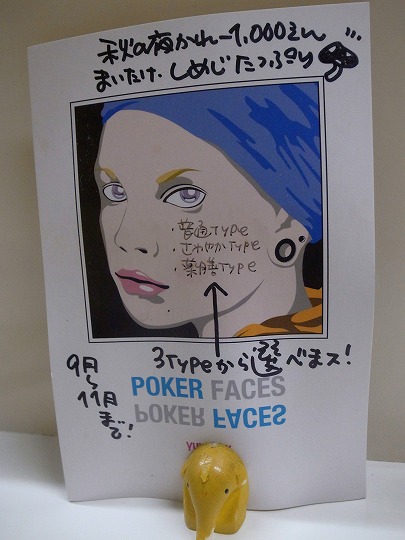 秋の夜かれー1,000えん
まいたけ、しめじたっぷり
・普通Type
・さわやかType
・薬膳Type
3Typeから選べまス!
9月
〜
11月
まで!
POKER FACES
POKER FACES